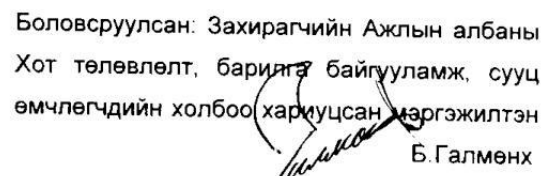 Боловсруулсан: Захирагчийн Ажлын албаны
Хот төлөвлөлт, барилга байгууламж, сууц
өмчлөгчдийн холбоо хариуцсан мэргэжилтэн
Б.Галмөнх